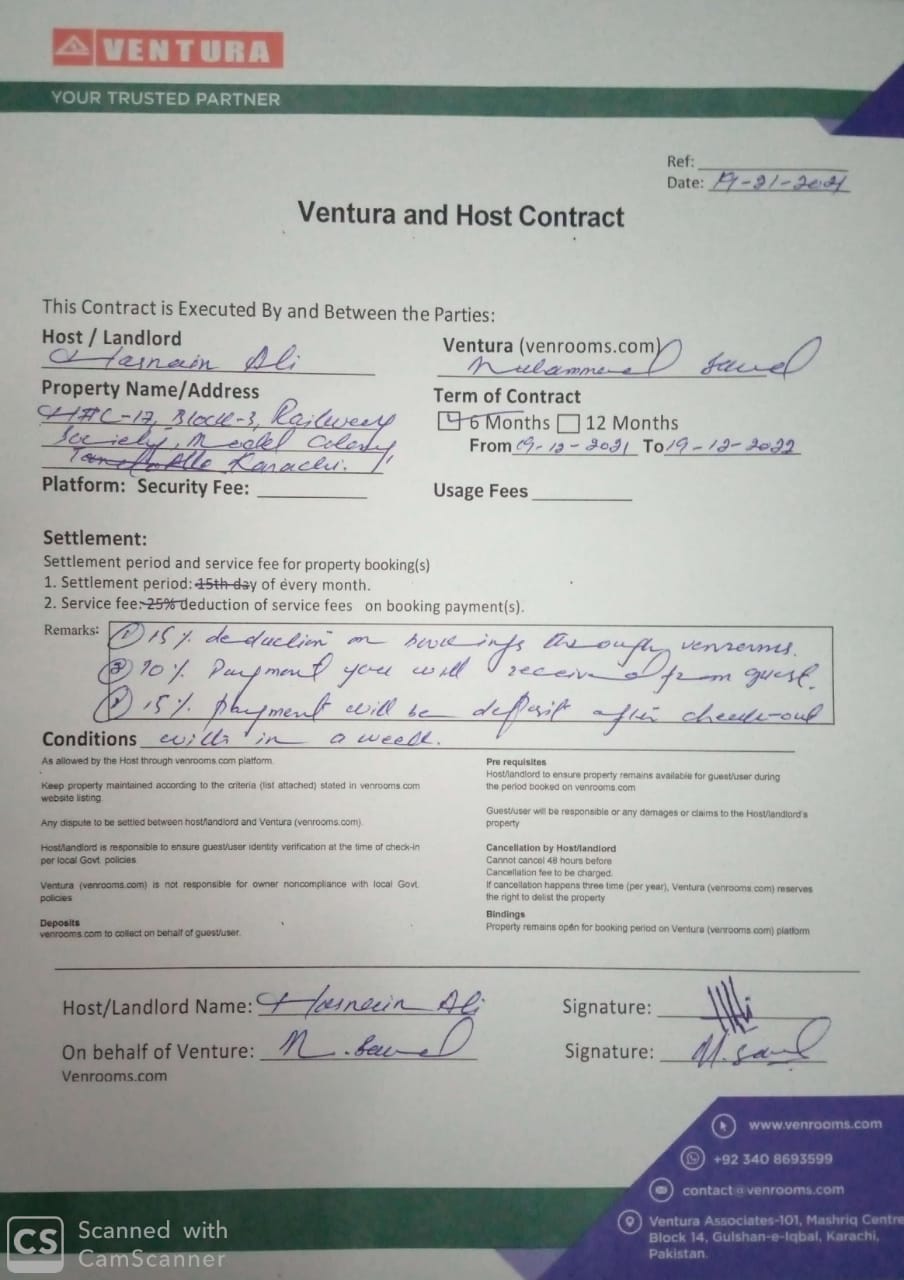 VENTURA
YOUR TRUSTED PARTNER
Ref:
Date: 19-21-2021
Ventura and Host Contract
This Contract is Executed By and Between the Parties:
Host / Landlord
Hasnain Ali
Ventura (venrooms.com)
Muhammad
Property Name/Address
H#C-17, Block-3, Railway
Society, Model Colony,
Karachi.
Term of Contract
6 Months 12 Months
From 19-12-2021 To 19-12-2022
Platform: Security Fee:
Usage Fees
Settlement:
Settlement period and service fee for property booking(s)
1. Settlement period: 15th day of every month.
2. Service fee: 25% deduction of service fees on booking payment(s).
Remarks: ① 15% deduction on bookings through venrooms.
② 70% Payment you will received from guest.
③ 15% Payment will be deposit after check-out
Conditions with in a week.
As allowed by the Host through venrooms.com platform.
Keep property maintained according to the criteria (list attached) stated in venrooms.com
website listing.
Any dispute to be settled between host/landlord and Ventura (venrooms.com).
Host/landlord is responsible to ensure guest/user identity verification at the time of check-in
per local Govt. policies.
Ventura (venrooms.com) is not responsible for owner noncompliance with local Govt.
policies
Deposits
venrooms.com to collect on behalf of guest/user.
Pre requisites
Host/landlord to ensure property remains available for guest/user during
the period booked on venrooms.com
Guest/user will be responsible or any damages or claims to the Host/landlord's
property
Cancellation by Host/landlord
Cannot cancel 48 hours before
Cancellation fee to be charged.
If cancellation happens three time (per year), Ventura (venrooms.com) reserves
the right to delist the property
Bindings
Property remains open for booking period on Ventura (venrooms.com) platform
Host/Landlord Name: Hasnain Ali
Signature:
On behalf of Venture:
Signature:
Venrooms.com
www.venrooms.com
+92 340 8693599
contact@venrooms.com
Ventura Associates-101, Mashriq Centre
Block 14, Gulshan-e-Iqbal, Karachi,
Pakistan.
CS Scanned with
CamScanner